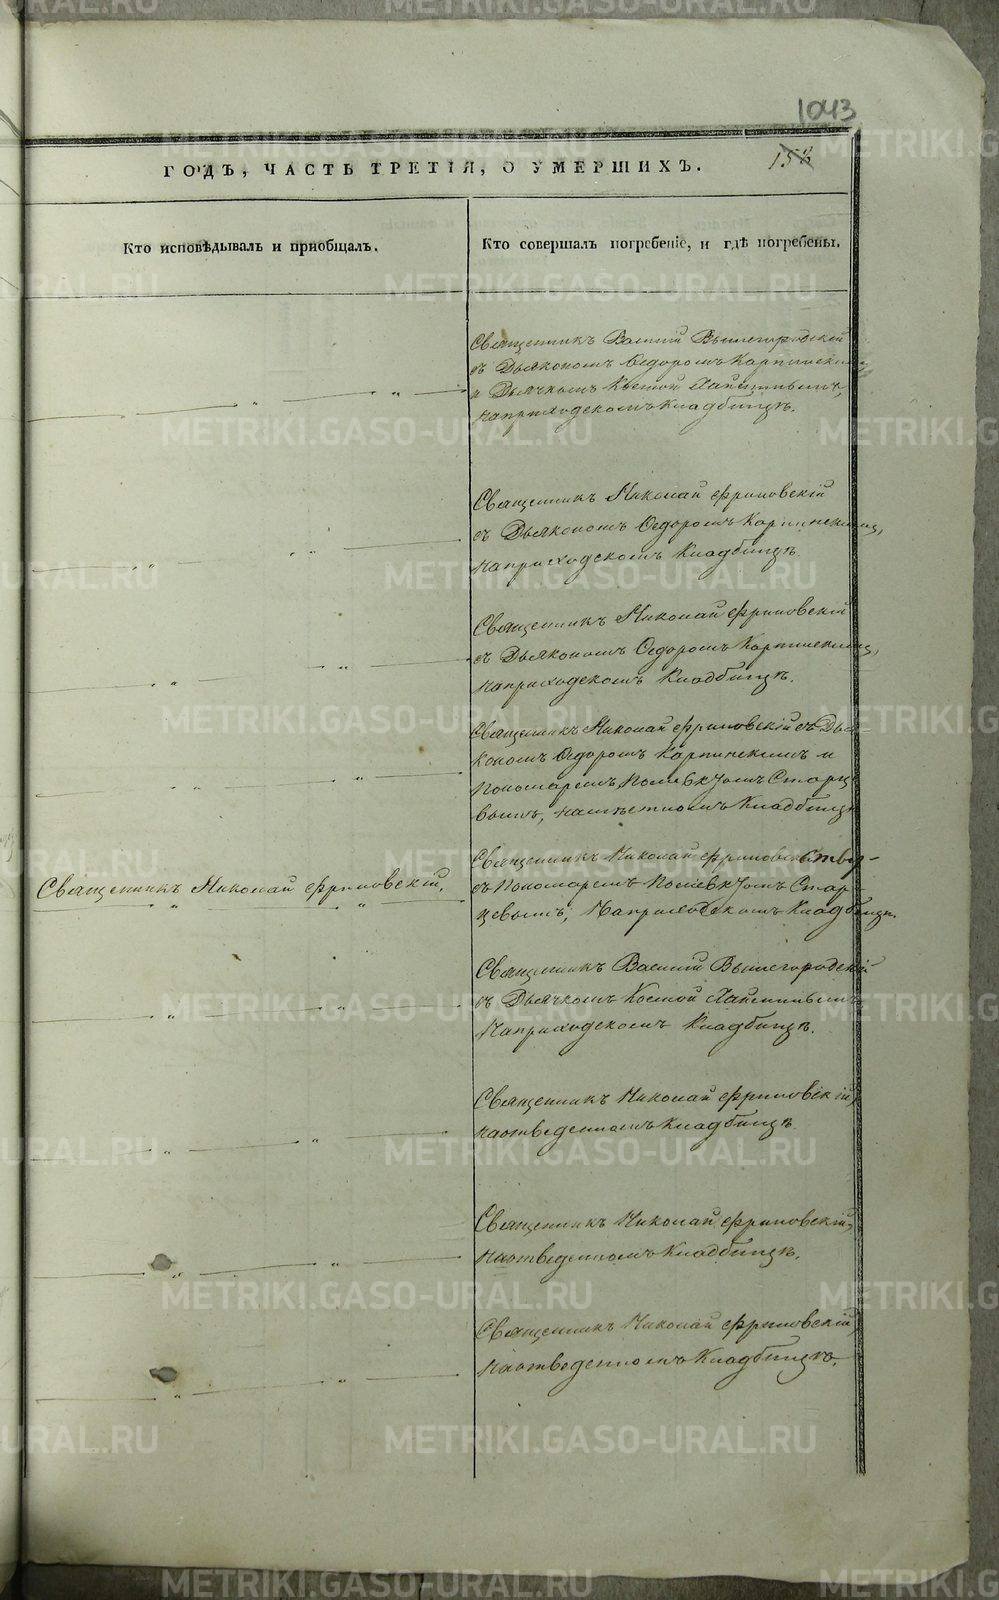 1043
158
ГОДЪ, ЧАСТЬ ТРЕТІЯ, О УМЕРШИХЪ.
Кто исповѣдывалъ и пріобщалъ.
Кто совершалъ погребеніе, и гдѣ погребены.
Священникъ Василій Вышегородскій
съ Дьякономъ Ѳедоромъ Карпинскимъ
и Дьячкомъ Костой
наприходскомъ Кладбищѣ.
Священникъ Николай Фриловскій
съ Дьякономъ Ѳедоромъ Карпинскимъ,
наприходскомъ Кладбищѣ.
Священникъ Николай Фриловскій
съ Дьякономъ Ѳедоромъ Карпинскимъ,
наприходскомъ Кладбищѣ.
Священникъ Николай Фриловскій съ Дья-
кономъ Ѳедоромъ Карпинскимъ и
Пономаремъ Старце
вымъ, Кладбищѣ
Священникъ Николай Фриловскій.
Священникъ Николай Фриловскій
съ Пономаремъ Стар-
цевымъ, Наприходскомъ Кладбищѣ.
Священникъ Василій Вышегородскій
съ Дьячкомъ Костой
Наприходскомъ Кладбищѣ.
Священникъ Николай Фриловскій,
наотведенномъ Кладбищѣ.
Священникъ Николай Фриловскій,
наотведенномъ Кладбищѣ.
Священникъ Николай Фриловскій,
Наотведенномъ Кладбищѣ.
METRIKI.GASO-URAL.RU